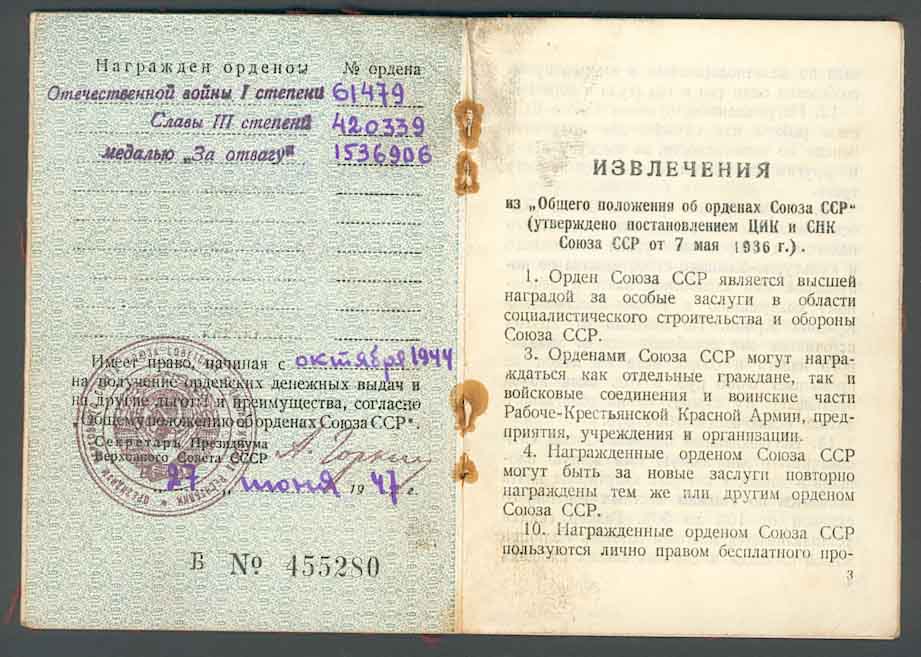 Награжден орденом № ордена
Отечественной войны I степени 61479
Славы III степени 420339
медалью „За отвагу" 1536906
Имеет право, начиная с октября 1944
на получение орденских денежных выдач и
на другие льготы и преимущества, согласно
„Общему положению об орденах Союза ССР".
Секретарь Президиума
Верховного Совета СССР А. Горкин
„27„ июня 1947 г.
Б № 455280
ИЗВЛЕЧЕНИЯ
из „Общего положения об орденах Союза ССР"
(утверждено постановлением ЦИК и СНК
Союза ССР от 7 мая 1936 г.).
1. Орден Союза ССР является высшей
наградой за особые заслуги в области
социалистического строительства и обороны
Союза ССР.
3. Орденами Союза ССР могут награ-
ждаться как отдельные граждане, так и
войсковые соединения и воинские части
Рабоче-Крестьянской Красной Армии, пред-
приятия, учреждения и организации.
4. Награжденные орденом Союза ССР
могут быть за новые заслуги повторно
награждены тем же или другим орденом
Союза ССР.
10. Награжденные орденом Союза ССР
пользуются лично правом бесплатного про-
3